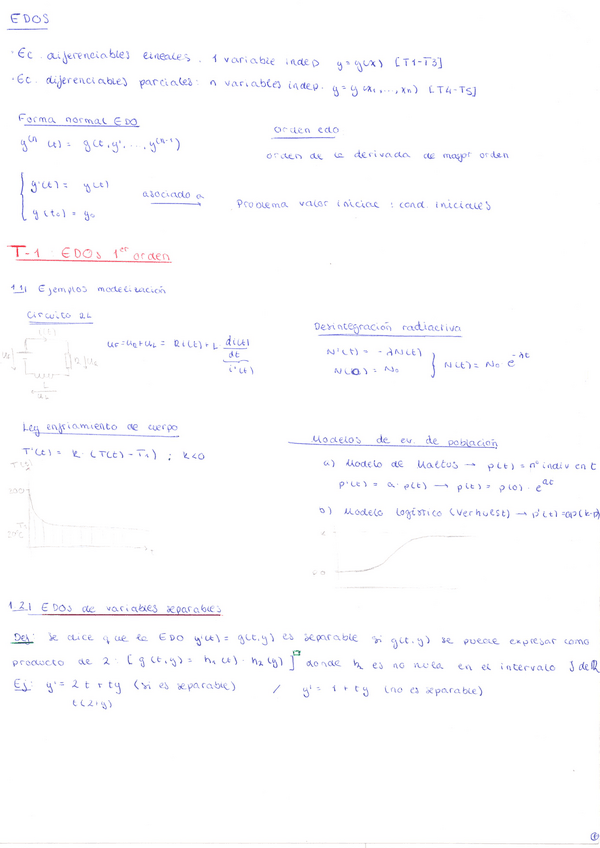 EDOS
· Ec. diferenciables lineales. 1 variable indep y = y(x) [T1-T3]
· Ec. diferenciables parciales: n variables indep. y = y(x₁,...,xn) [T4-T5]
Forma normal EDO
Orden edo
y⁽ⁿ⁾(t) = g(t,y',...,y⁽ⁿ⁻¹⁾)
orden de la derivada de mayor orden
y'(t) = y(t)
y(t₀) = y₀
asociado a
Problema valor inicial : cond. iniciales
T-1 EDOs 1er orden
1.1| Ejemplos modelización
Circuito RL
Desintegración radiactiva
i(t)
L
u_F = u_R + u_L = R i(t) + L di(t)/dt
i'(t)
N'(t) = -λN(t)
N(0) = N₀
N(t) = N₀ e^-λt
Ley enfriamiento de cuerpo
Modelos de ev. de población
T'(t) = k · (T(t) - Ta) ; k<0
a) Modelo de Maltus → p(t) = nº indiv en t
p'(t) = a · p(t) → p(t) = p(0) · e^at
100
b) Modelo logístico (Verhulst) → p'(t) = ap(k-p)
1.2| EDOs de variables separables
Def: Se dice que la EDO y'(t) = g(t,y) es separable si g(t,y) se puede expresar como
producto de 2: [g(t,y) = h₁(t) · h₂(y)] donde h₂ es no nula en el intervalo J de ℝ
Ej: y' = 2t + ty (si es separable) / y' = 1 + ty (no es separable)
t(2+y)
1